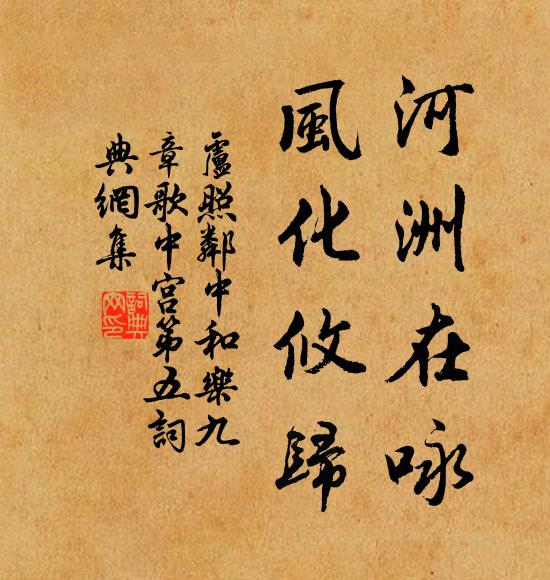 河洲在咏
風化攸歸
盧照鄰中和樂九
章歌中宮第五詞
典網集
詞典網印